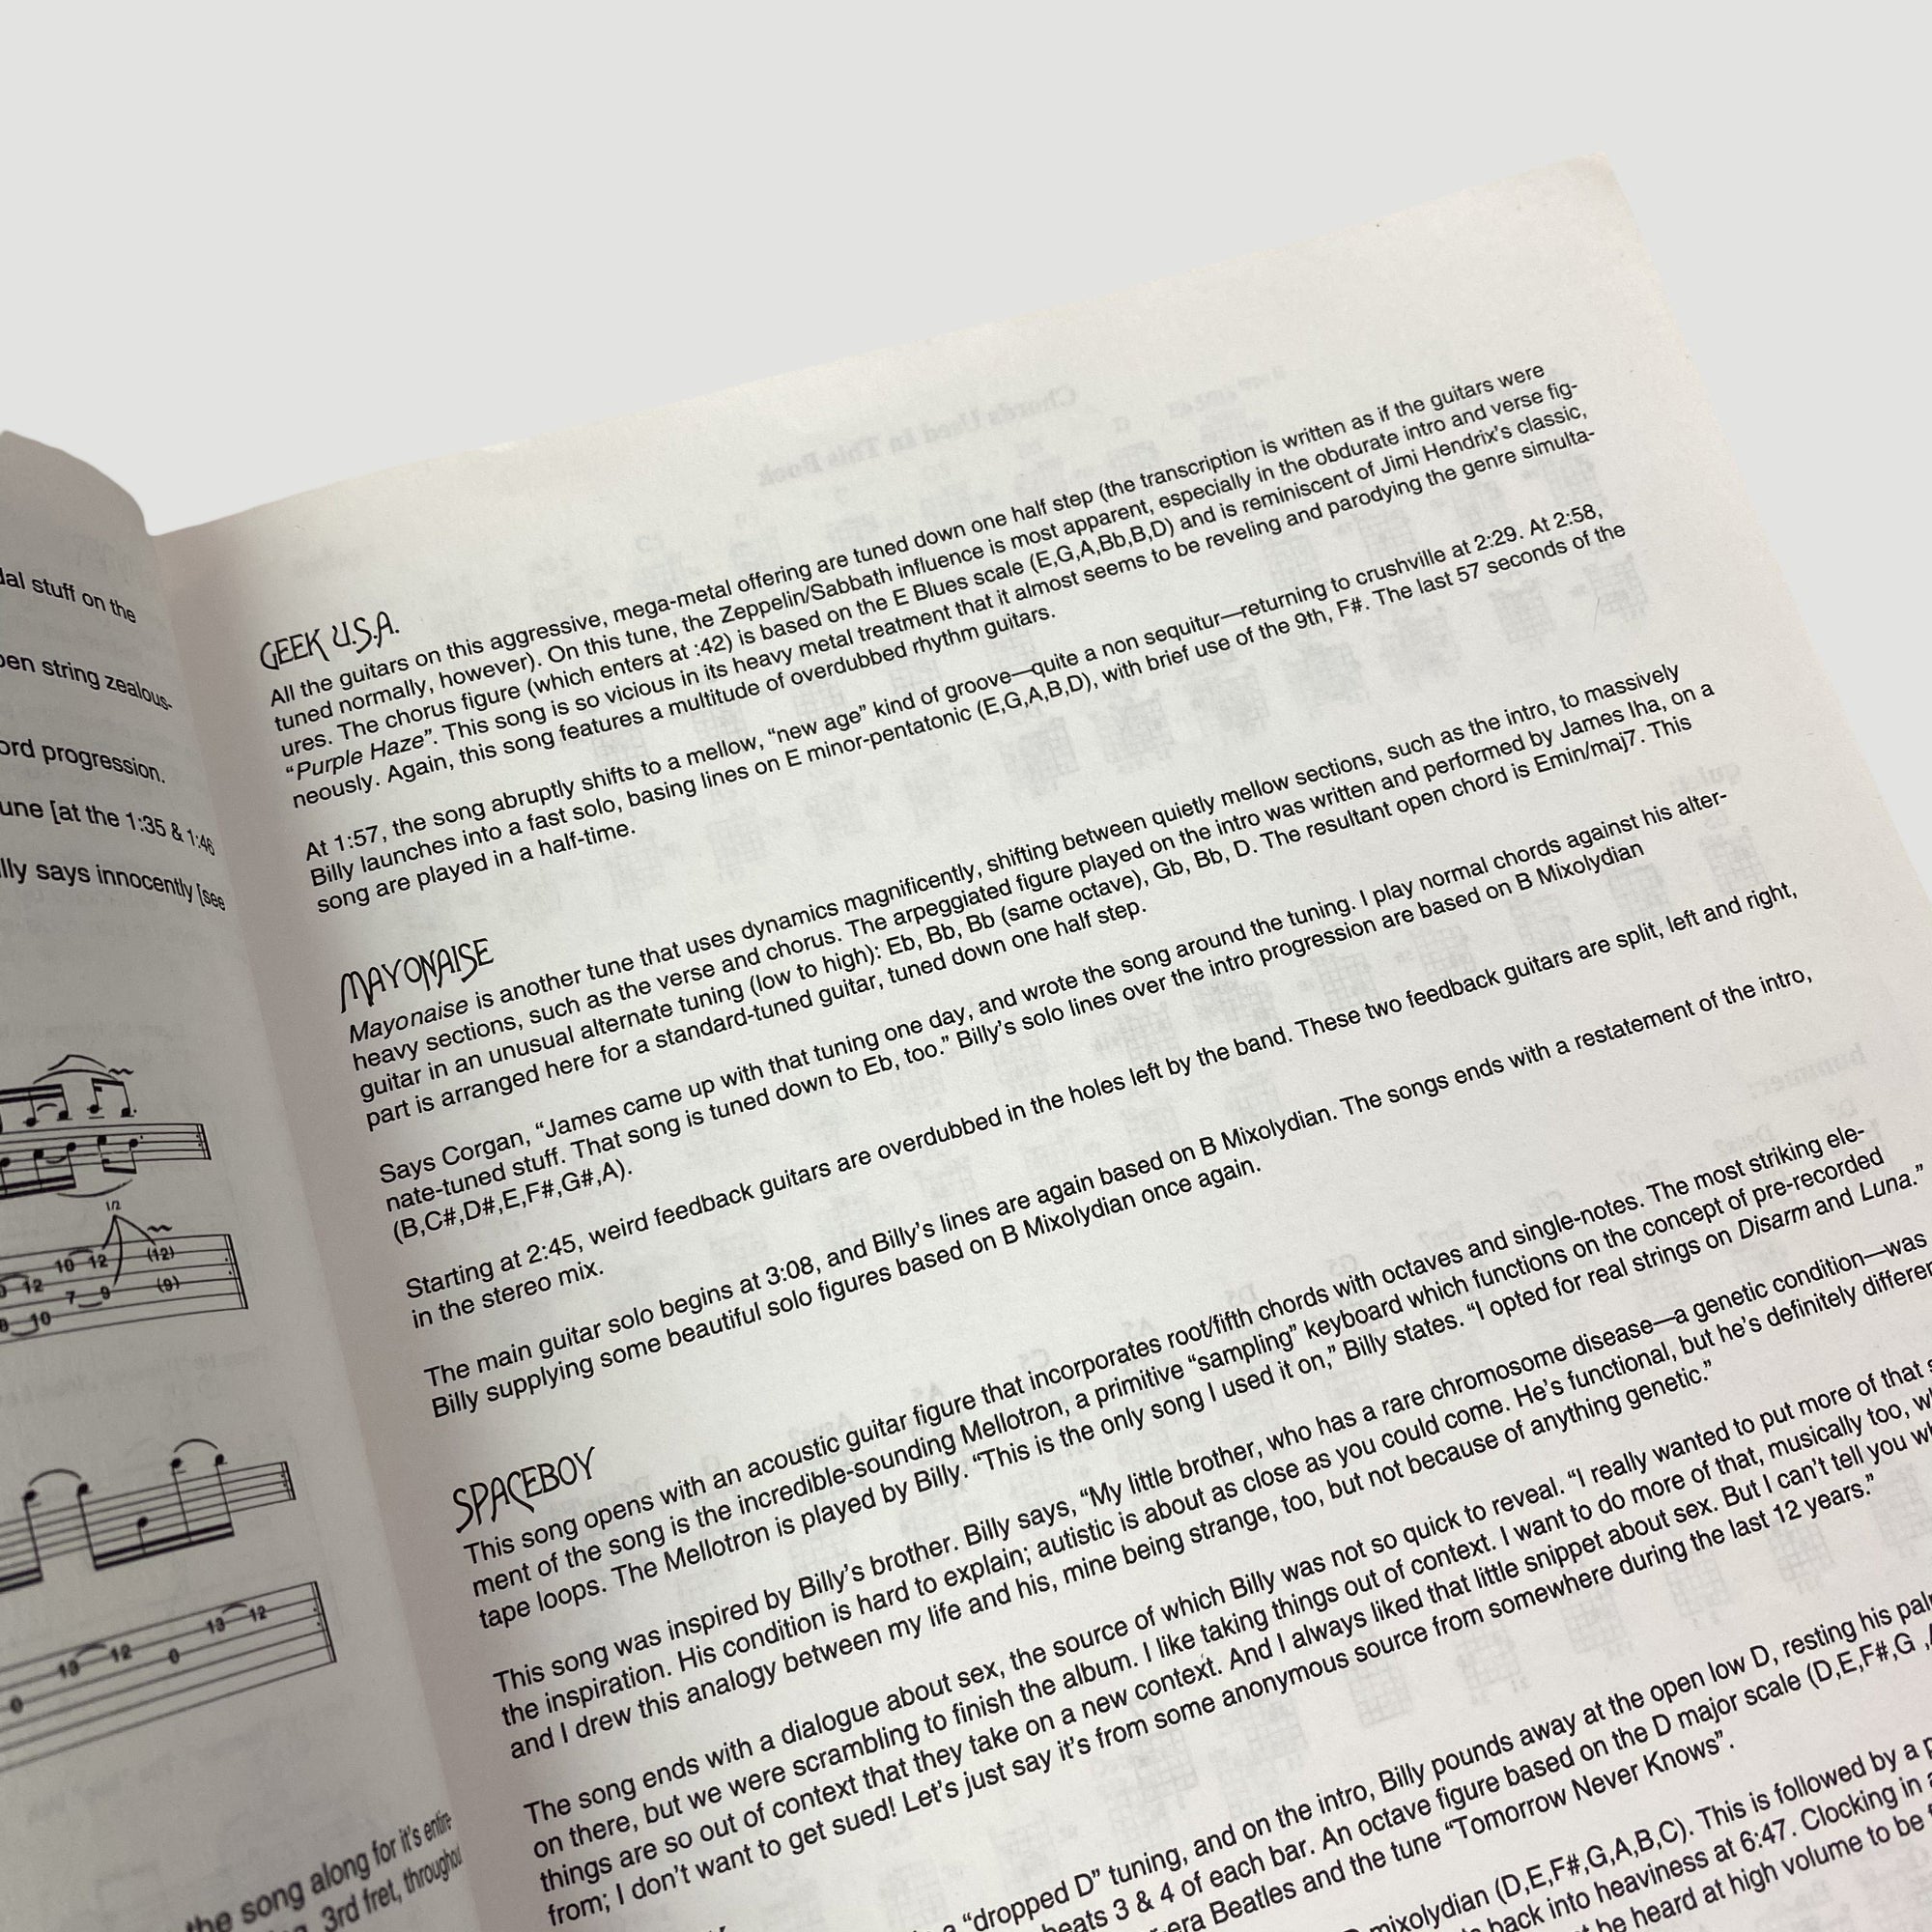 dal stuff on the
pen string zealous-
ord progression.
une [at the 1:35 & 1:46
lly says innocently [see
1/2
10 12 (12)
12
7 9 (9)
10
13 12
13 12 0
0
the song along for it's entire-
3rd fret, throughout
GEEK U.S.A.
All the guitars on this aggressive, mega-metal offering are tuned down one half step (the transcription is written as if the guitars were
tuned normally, however). On this tune, the Zeppelin/Sabbath influence is most apparent, especially in the obdurate intro and verse fig-
ures. The chorus figure (which enters at :42) is based on the E Blues scale (E,G,A,Bb,B,D) and is reminiscent of Jimi Hendrix's classic,
“Purple Haze”. This song is so vicious in its heavy metal treatment that it almost seems to be reveling and parodying the genre simulta-
neously. Again, this song features a multitude of overdubbed rhythm guitars.
At 1:57, the song abruptly shifts to a mellow, “new age” kind of groove—quite a non sequitur—returning to crushville at 2:29. At 2:58,
Billy launches into a fast solo, basing lines on E minor-pentatonic (E,G,A,B,D), with brief use of the 9th, F#. The last 57 seconds of the
song are played in a half-time.
MAYONAISE
Mayonaise is another tune that uses dynamics magnificently, shifting between quietly mellow sections, such as the intro, to massively
heavy sections, such as the verse and chorus. The arpeggiated figure played on the intro was written and performed by James Iha, on a
guitar in an unusual alternate tuning (low to high): Eb, Bb, Bb (same octave), Gb, Bb, D. The resultant open chord is Emin/maj7. This
part is arranged here for a standard-tuned guitar, tuned down one half step.
Says Corgan, “James came up with that tuning one day, and wrote the song around the tuning. I play normal chords against his alter-
nate-tuned stuff. That song is tuned down to Eb, too.” Billy's solo lines over the intro progression are based on B Mixolydian
(B,C#,D#,E,F#,G#,A).
Starting at 2:45, weird feedback guitars are overdubbed in the holes left by the band. These two feedback guitars are split, left and right,
in the stereo mix.
The main guitar solo begins at 3:08, and Billy's lines are again based on B Mixolydian. The songs ends with a restatement of the intro,
Billy supplying some beautiful solo figures based on B Mixolydian once again.
SPACEBOY
This song opens with an acoustic guitar figure that incorporates root/fifth chords with octaves and single-notes. The most striking ele-
ment of the song is the incredible-sounding Mellotron, a primitive “sampling” keyboard which functions on the concept of pre-recorded
tape loops. The Mellotron is played by Billy. “This is the only song I used it on,” Billy states. “I opted for real strings on Disarm and Luna.”
This song was inspired by Billy's brother. Billy says, “My little brother, who has a rare chromosome disease—a genetic condition—was
the inspiration. His condition is hard to explain; autistic is about as close as you could come. He's functional, but he's definitely differen
and I drew this analogy between my life and his, mine being strange, too, but not because of anything genetic.”
The song ends with a dialogue about sex, the source of which Billy was not so quick to reveal. “I really wanted to put more of that s
on there, but we were scrambling to finish the album. I like taking things out of context. I want to do more of that, musically too, w
things are so out of context that they take on a new context. And I always liked that little snippet about sex. But I can't tell you wh
from; I don't want to get sued! Let's just say it's from some anonymous source from somewhere during the last 12 years.”
a “dropped D” tuning, and on the intro, Billy pounds away at the open low D, resting his palm
beats 3 & 4 of each bar. An octave figure based on the D major scale (D,E,F#,G
era Beatles and the tune “Tomorrow Never Knows”.
mixolydian (D,E,F#,G,A,B,C). This is followed by a p
back into heaviness at 6:47. Clocking in a
be heard at high volume to be